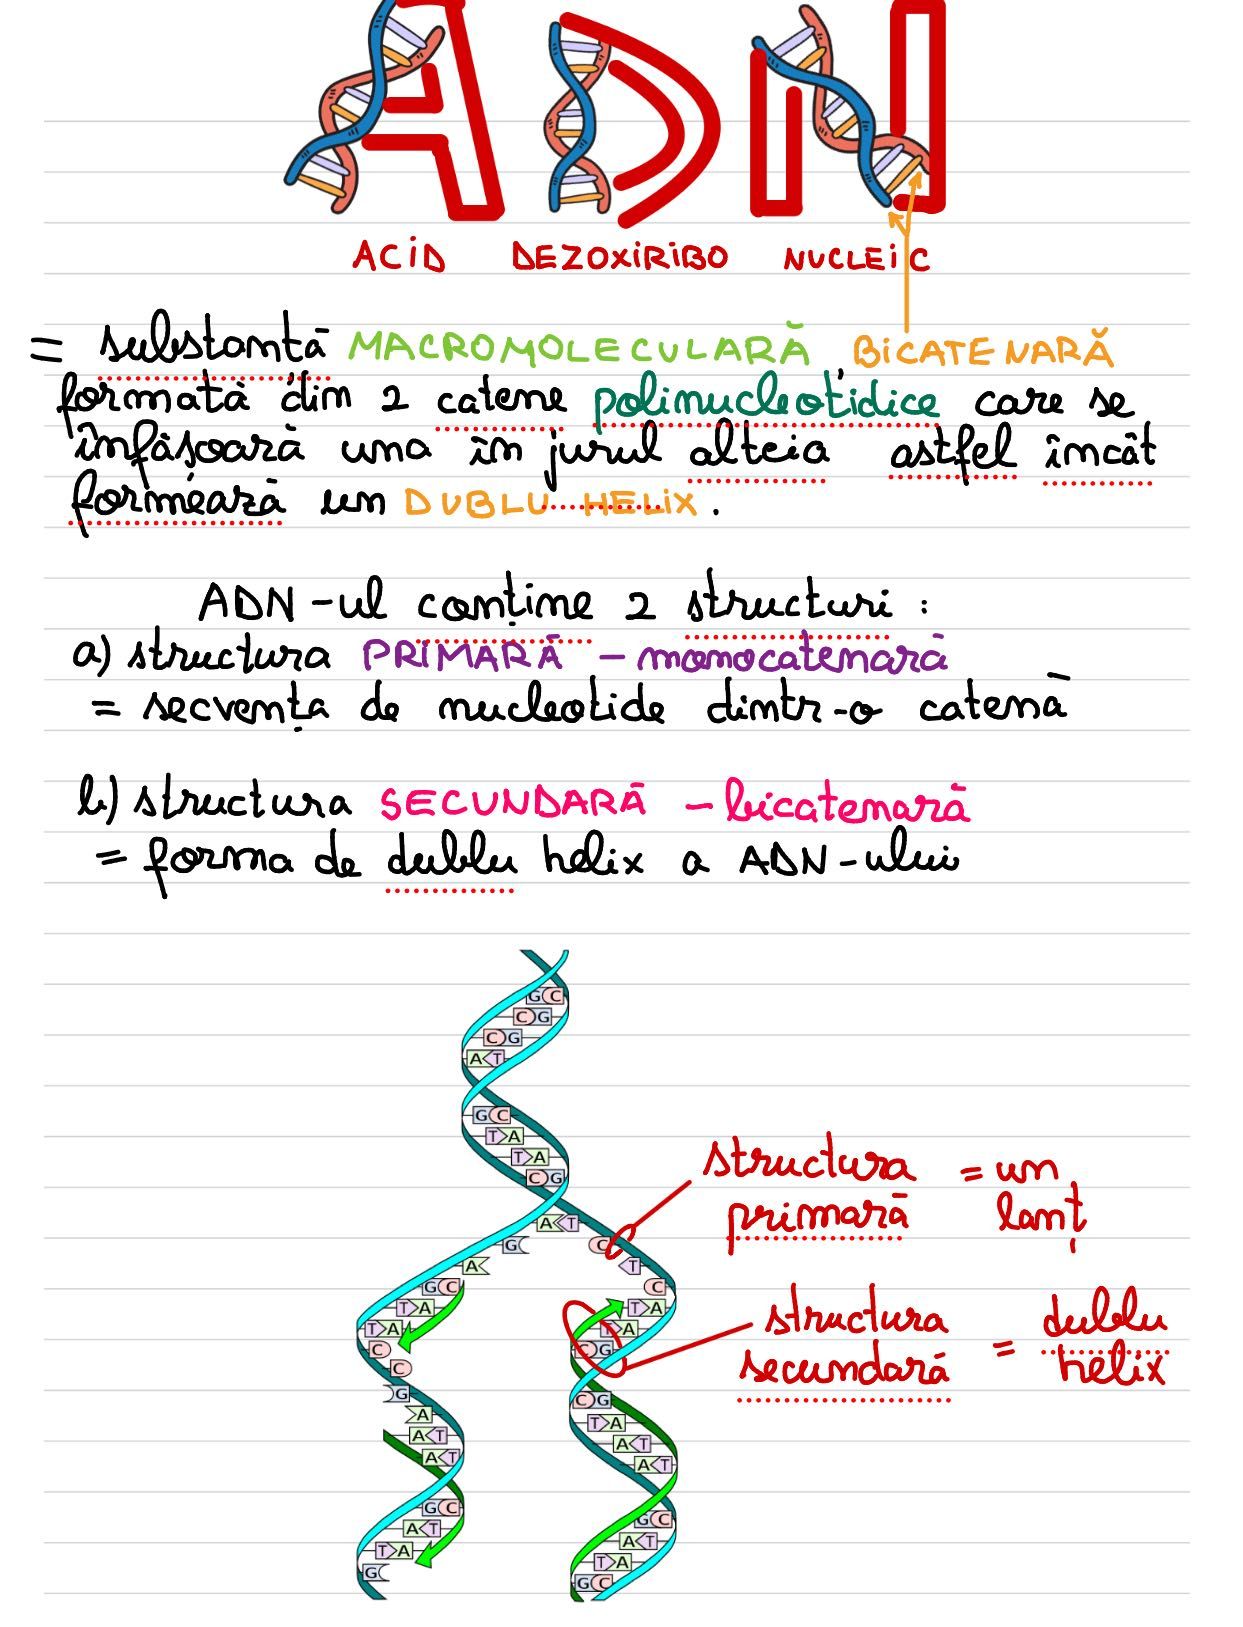 ADN
ACID DEZOXIRIBO NUCLEIC
= substanță MACROMOLECULARĂ BICATENARĂ
formată din 2 catene polinucleotidice care se
înfășoară una în jurul alteia astfel încât
formează un DUBLU HELIX.
ADN-ul conține 2 structuri:
a) structura PRIMARĂ - monocatenară
= secvența de nucleotide dintr-o catenă
b) structura SECUNDARĂ - bicatenară
= forma de dublu helix a ADN-ului
G C
C G
C G
A T
G C
T A
T A
C G
A T
G C
A T
G C C
T A T A
T A T A
C C G
C
G C G
A T A
A T A T
A T A T
G C G C
A T A T
T A T A
G G C
structura = un
primară lanț
structura = dublu
secundară helix